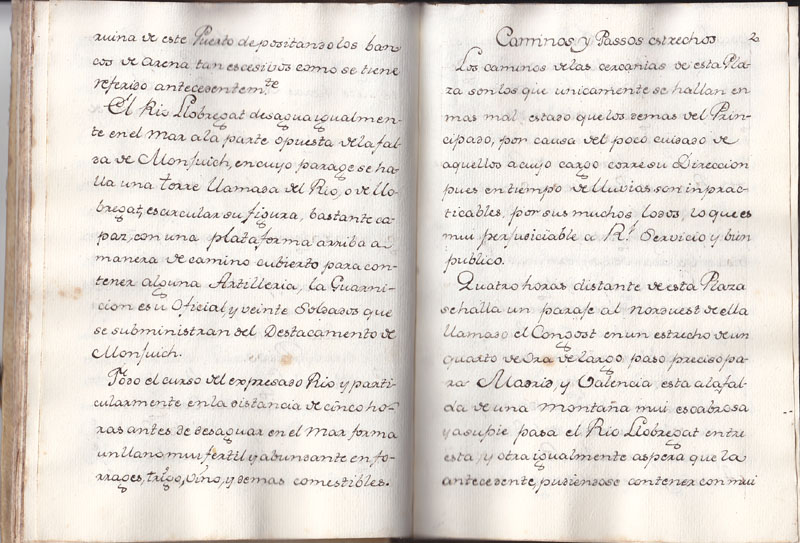 ruina de este Puerto depositandolos ban-
cos de arena tan escesivos como se tiene
referido antecedentem.te
El Rio Llobregat desagua igualmen-
te en el Mar ala parte opuesta de la fal-
da de Monjuich, en cuyo parage se ha-
lla una torre llamada del Rio, o de Llo-
bregat, es circular su figura, bastante ca-
paz, con una plataforma arriba a
manera de camino cubierto para con-
tener alguna Artilleria, la Guarni-
cion es u Oficial y veinte Soldados que
se subministran del Destacamento de
Monjuich.
Todo el curso del expresado Rio y parti-
cularmente en la distancia de cinco ho-
ras antes de desaguar en el Mar forma
un llano mui fertil y abundante en fo-
rrages, trigo, vino, y demas comestibles.
Caminos y Passos estrechos 2
Los caminos delas cercanias de esta Pla-
za son los que unicamente se hallan en
mas mal estado que los demas del Prin-
cipado, por causa del poco cuidado de
aquellos a cuyo cargo corre su Direccion
pues en tiempo de lluvias son inprac-
ticables, por sus muchos lodos, lo que es
mui perjudiciable a Rl. Servicio y bien
publico.
Quatro horas distante de esta Plaza
se halla un paraje al norduest de ella
llamado el Congost en un estrecho de un
quarto de Ora de largo paso preciso pa-
ra Madrid y Valencia, esta ala fal-
da de una montaña mui escabrosa
y asu pie pasa el Rio Llobregat entre
esta, y otra igualmente aspera que la
antecedente, pudiendose contener con mui